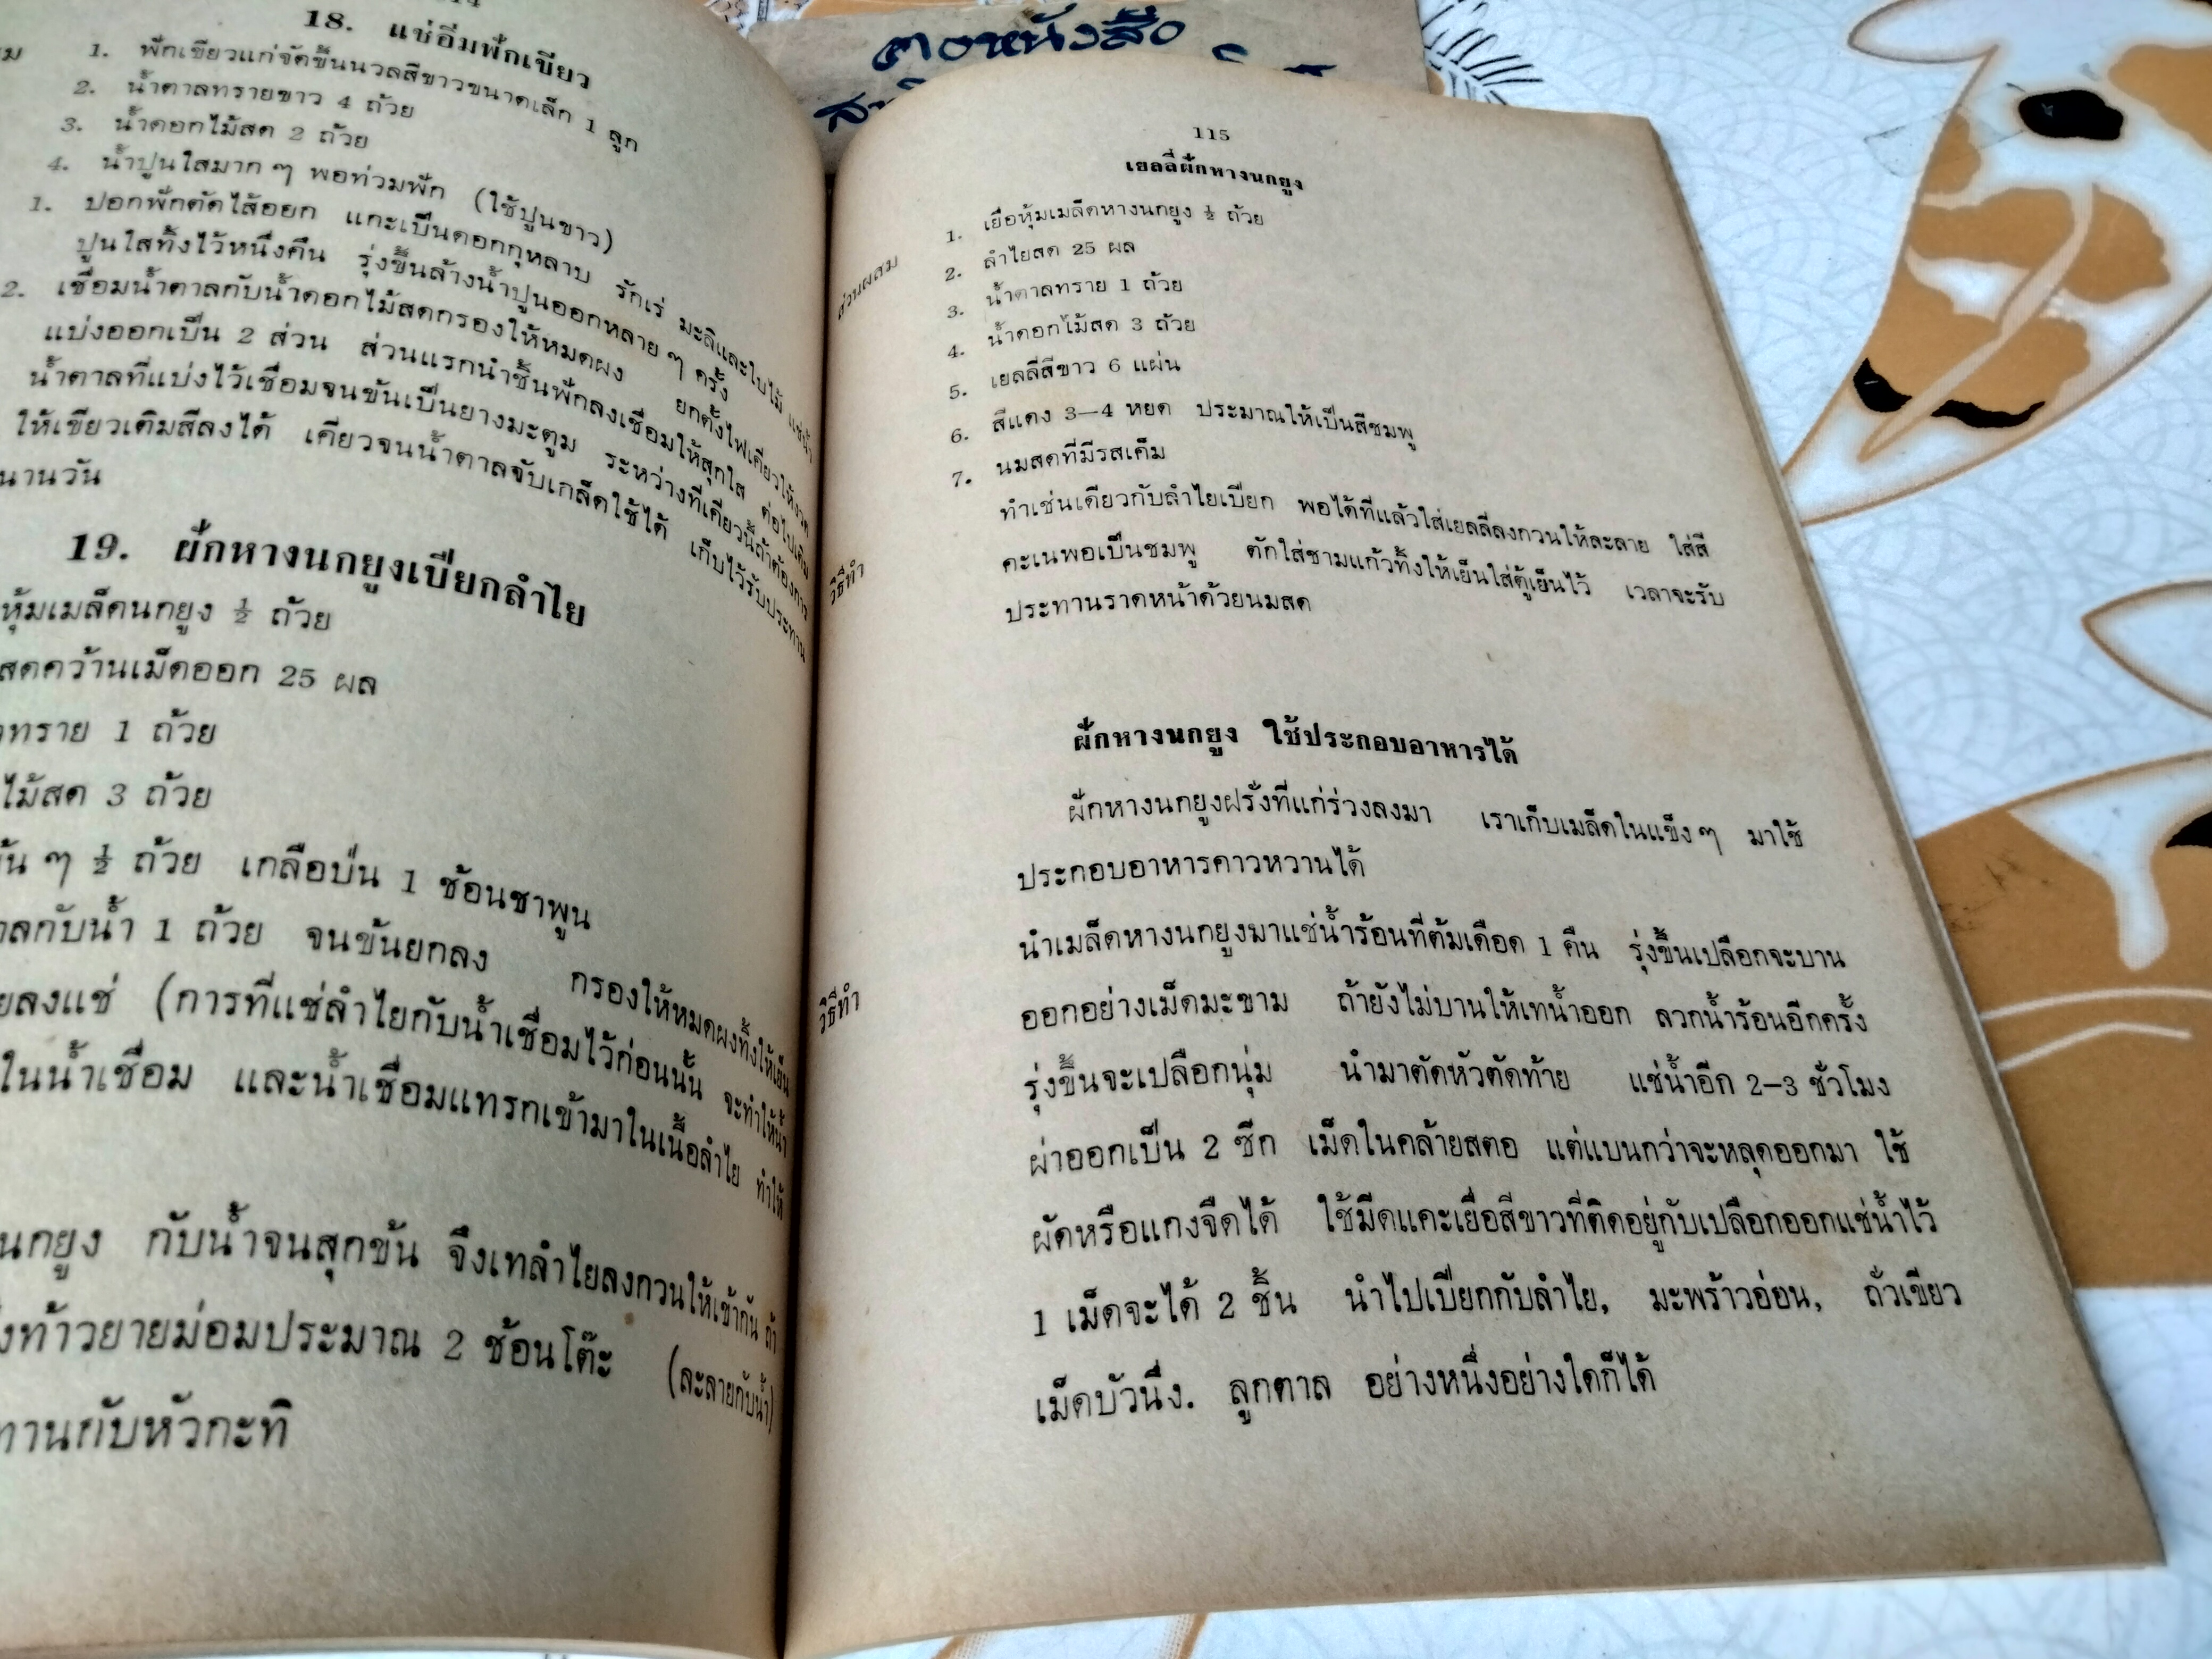 18. แช่อิ่มฟักเขียว
1. ฟักเขียวแก่จัดขึ้นนวลสีขาวขนาดเล็ก 1 ลูก
2. น้ำตาลทรายขาว 4 ถ้วย
3. น้ำดอกไม้สด 2 ถ้วย
4. น้ำปูนใสมาก ๆ พอท่วมฟัก (ใช้ปูนขาว)
1. ปอกฟักตัดไส้ออก แกะเป็นดอกกุหลาบ รักเร่ มะลิและใบไม้ แช่น้ำ
ปูนใสทิ้งไว้หนึ่งคืน รุ่งขึ้นล้างน้ำปูนออกหลาย ๆ ครั้ง
2. เชื่อมน้ำตาลกับน้ำดอกไม้สดกรองให้หมดผง ยกตั้งไฟเคี่ยวให้งวด
แบ่งออกเป็น 2 ส่วน ส่วนแรกนำชิ้นฟักลงเชื่อมให้สุกใส ต่อไปเติม
น้ำตาลที่แบ่งไว้เชื่อมจนข้นเป็นยางมะตูม ระหว่างที่เคี่ยวนี้ถ้าต้องการ
ให้เขียวเติมสีลงได้ เคี่ยวจนน้ำตาลจับเกล็ดใช้ได้ เก็บไว้รับประทาน
นานวัน
19. ฝักหางนกยูงเปียกลำไย
หุ้มเมล็ดนกยูง ½ ถ้วย
สดคว้านเม็ดออก 25 ผล
ทราย 1 ถ้วย
ไม้สด 3 ถ้วย
ข้น ๆ ½ ถ้วย เกลือป่น 1 ช้อนชาพูน
ลกับน้ำ 1 ถ้วย จนข้นยกลง กรองให้หมดผงทิ้งให้เย็น
ยลงแช่ (การที่แช่ลำไยกับน้ำเชื่อมไว้ก่อนนั้น จะทำให้น้ำ
ในน้ำเชื่อม และน้ำเชื่อมแทรกเข้ามาในเนื้อลำไย ทำให้
นกยูง กับน้ำจนสุกข้น จึงเทลำไยลงกวนให้เข้ากัน ถ้า
งท้าวยายม่อมประมาณ 2 ช้อนโต๊ะ (ละลายกับน้ำ)
ทานกับหัวกะทิ
115
เยลลี่ฝักหางนกยูง
ส่วนผสม
1. เยื่อหุ้มเมล็ดหางนกยูง ½ ถ้วย
2. ลำไยสด 25 ผล
3. น้ำตาลทราย 1 ถ้วย
4. น้ำดอกไม้สด 3 ถ้วย
5. เยลลี่สีขาว 6 แผ่น
6. สีแดง 3—4 หยด ประมาณให้เป็นสีชมพู
7. นมสดที่มีรสเค็ม
วิธีทำ ทำเช่นเดียวกับลำไยเปียก พอได้ที่แล้วใส่เยลลี่ลงกวนให้ละลาย ใส่สี
คะเนพอเป็นชมพู ตักใส่ชามแก้วทิ้งให้เย็นใส่ตู้เย็นไว้ เวลาจะรับ
ประทานราดหน้าด้วยนมสด
ฝักหางนกยูง ใช้ประกอบอาหารได้
ฝักหางนกยูงฝรั่งที่แก่ร่วงลงมา เราเก็บเมล็ดในแข็ง ๆ มาใช้
ประกอบอาหารคาวหวานได้
วิธีทำ นำเมล็ดหางนกยูงมาแช่น้ำร้อนที่ต้มเดือด 1 คืน รุ่งขึ้นเปลือกจะบาน
ออกอย่างเม็ดมะขาม ถ้ายังไม่บานให้เทน้ำออก ลวกน้ำร้อนอีกครั้ง
รุ่งขึ้นจะเปลือกนุ่ม นำมาตัดหัวตัดท้าย แช่น้ำอีก 2—3 ชั่วโมง
ผ่าออกเป็น 2 ซีก เม็ดในคล้ายสตอ แต่แบนกว่าจะหลุดออกมา ใช้
ผัดหรือแกงจืดได้ ใช้มีดแคะเยื่อสีขาวที่ติดอยู่กับเปลือกออกแช่น้ำไว้
1 เม็ดจะได้ 2 ชิ้น นำไปเปียกกับลำไย, มะพร้าวอ่อน, ถั่วเขียว
เม็ดบัวนึ่ง. ลูกตาล อย่างหนึ่งอย่างใดก็ได้